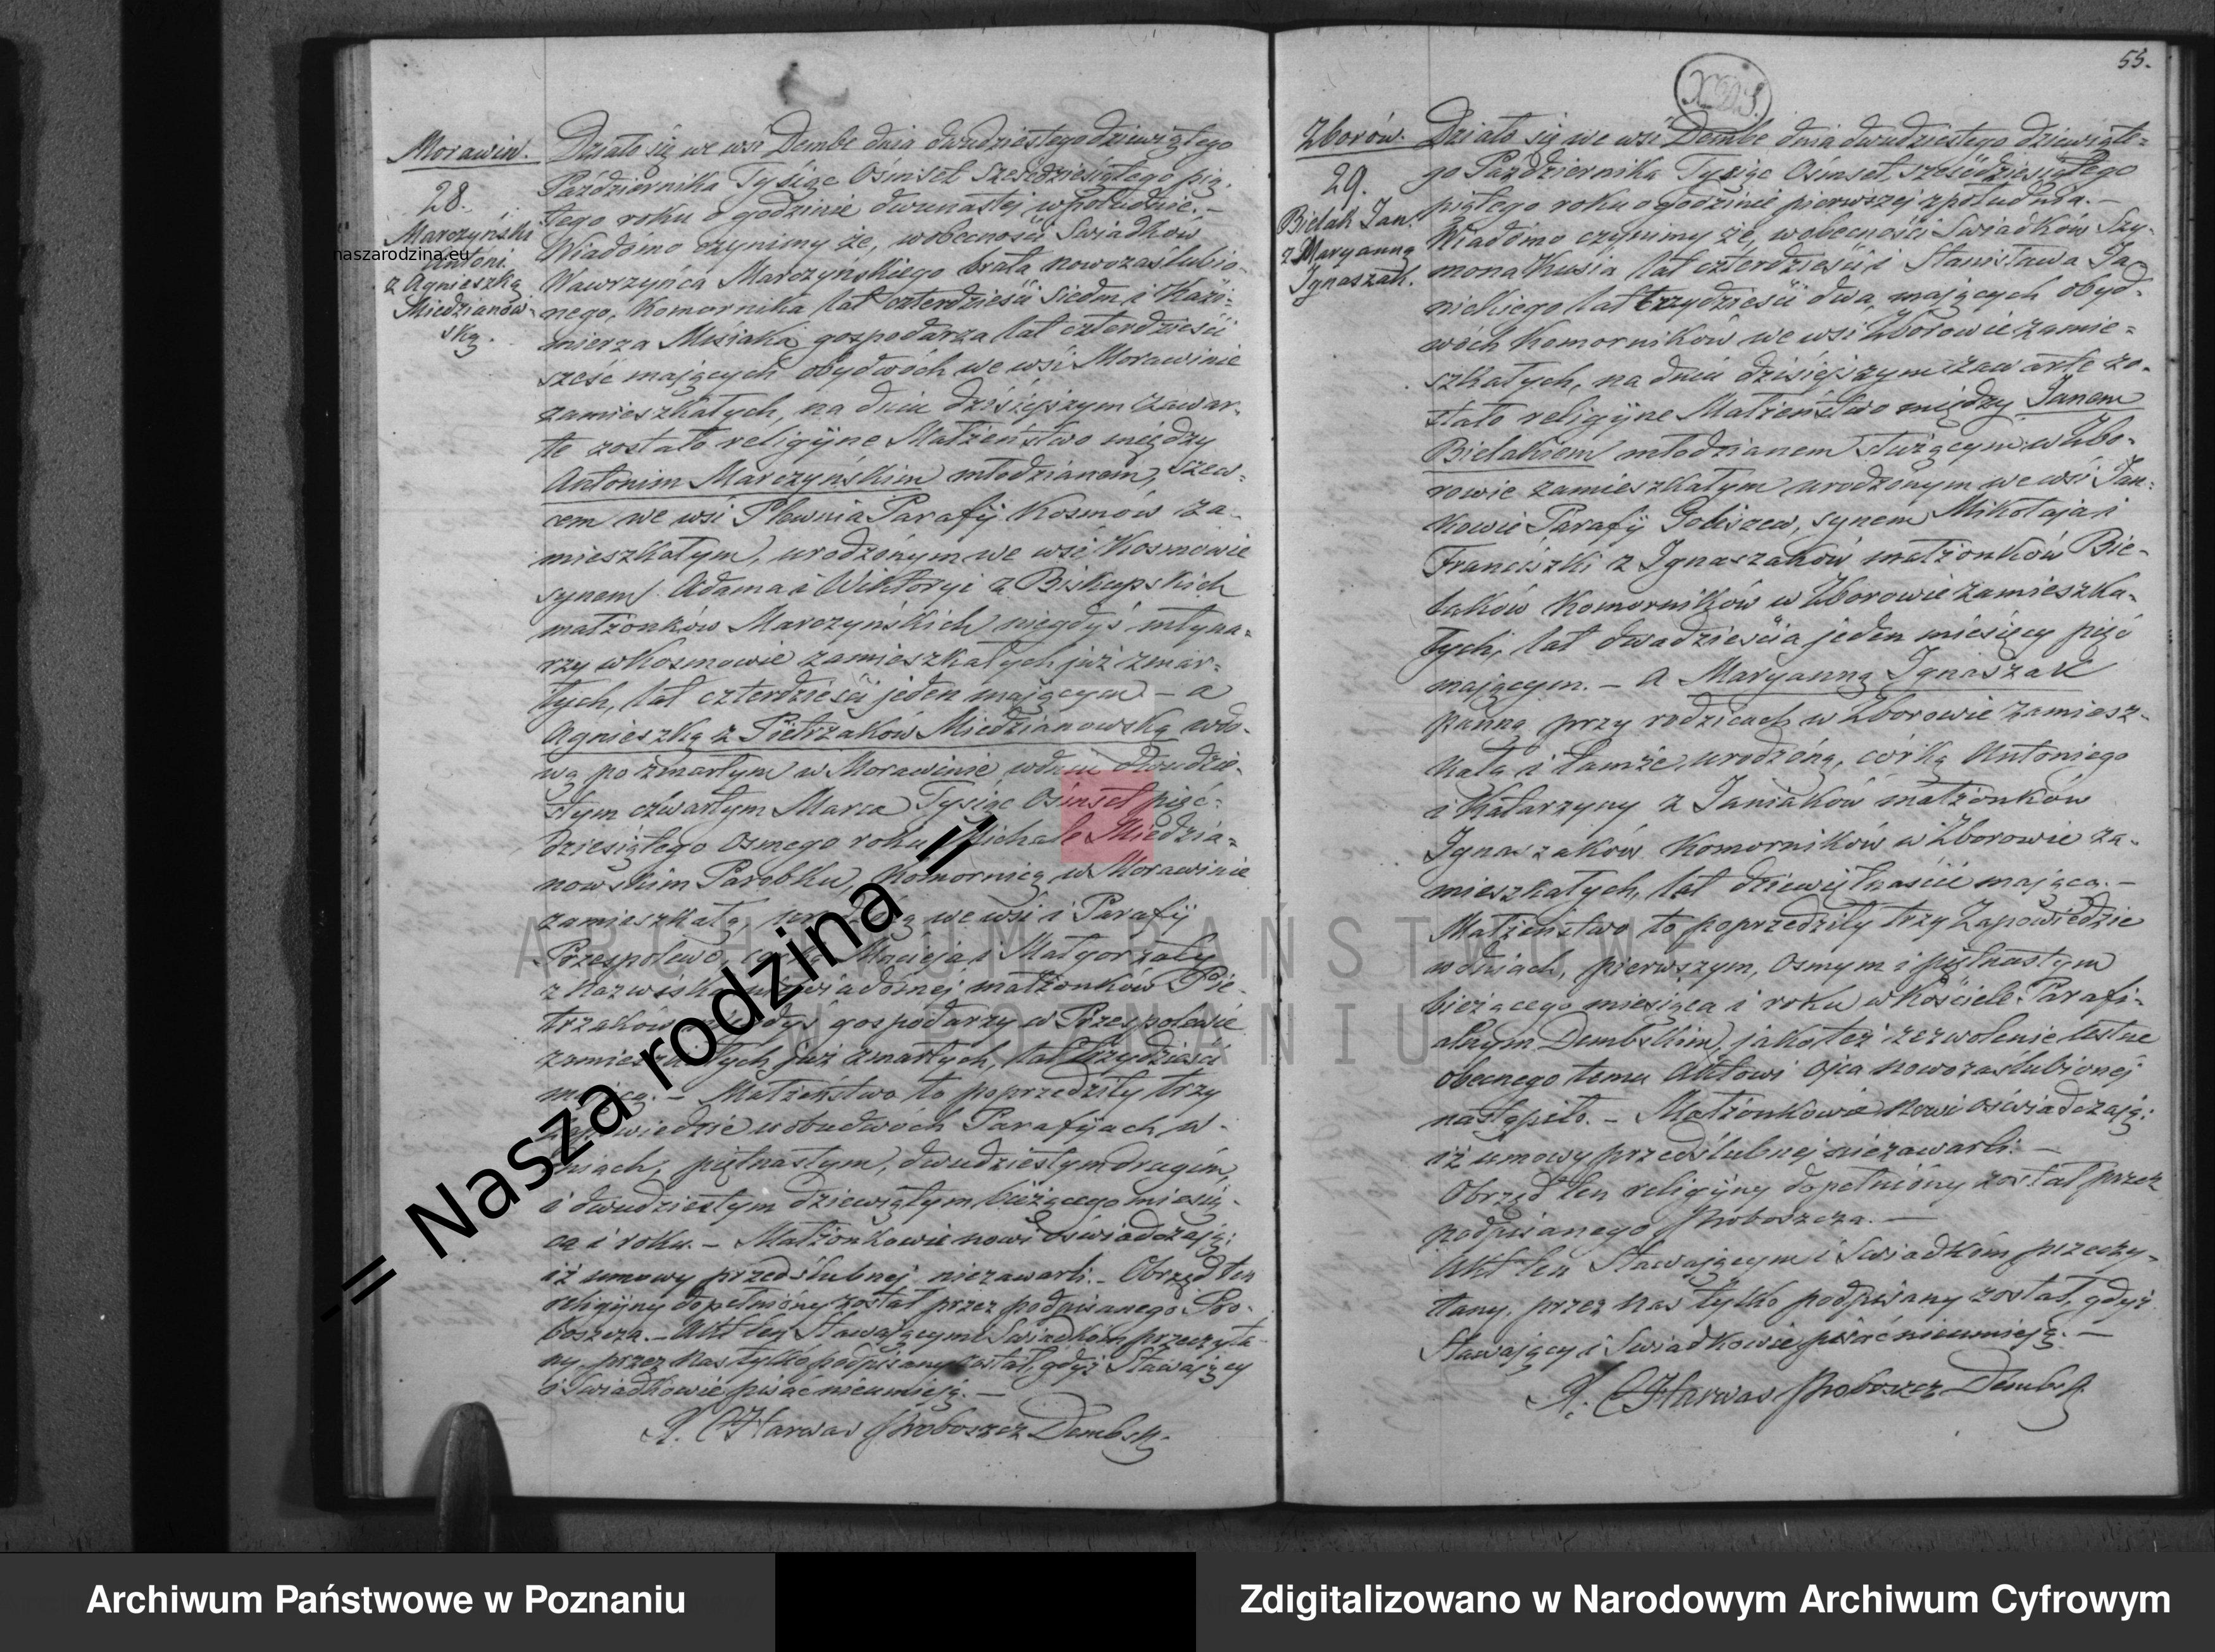 Morawin.
28.
Marczyński
Antoni
z Agnieszką
Miedzianow-
ską.
naszarodzina.eu
Działo się we wsi Dembe dnia dwudziestego dziewiątego
Października Tysiąc Ośmset sześćdziesiątego pią-
tego roku o godzinie dwunastej w południe. –
Wiadomo czynimy że, w obecności Świadków
Wawrzyńca Marczyńskiego brata nowozaślubio-
nego, Komornika lat czterdzieści siedm i Kazi-
mierza Misiaka gospodarza lat czterdzieści
sześć mających obydwóch we wsi Morawinie
zamieszkałych, na dniu dzisiejszym zawar-
te zostało religijne Małżeństwo między
Antonim Marczyńskim młodzianem, szew-
cem we wsi Plewnia Parafij Kosmów za-
mieszkałym, urodzonym we wsi Kosmowie
synem Adama i Wiktoryi z Biskupskich
małżonków Marczyńskich niegdyś młyna-
rzy w Kosmowie zamieszkałych już zmar-
łych, lat czterdzieści jeden mającym – a
Agnieszką z Pietrzaków Miedzianowską wdo-
wą po zmarłym w Morawinie w dniu dwudzie-
stym czwartym Marca Tysiąc Ośmset pięć-
dziesiątego osmego roku Michale Miedzia-
nowskim Parobku, Komornicą w Morawinie
zamieszkałą, we wsi i Parafij
Przespolewo, córką Macieja i Małgorzaty
z nazwiska niewiadomej małżonków Pie-
trzaków niegdyś gospodarzy w Przespolewie
zamieszkałych już zmarłych, lat trzydzieści
mającą. – Małżeństwo to poprzedziły trzy
Zapowiedzie w obudwóch Parafijach w
dniach, piętnastym, dwudziestym drugim,
i dwudziestym dziewiątym bieżącego miesią-
ca i roku. – Małżonkowie nowi oświadczają;
iż umowy przedślubnej niezawarli. – Obrzęd ten
religijny dopełniony został przez podpisanego Pro-
boszcza. – Akt ten Stawającym i Świadkom przeczyta-
ny, przez nas tylko podpisany został, gdyż Stawający
i Świadkowie pisać nieumieją. –
X. Harwas Proboszcz Dembski
-= Nasza rodzina =-
ARCHIWUM PAŃSTWOWE
W POZNANIU
55.
Zborów.
29.
Bielak Jan
z Maryanną
Ignaszak.
Działo się we wsi Dembe dnia dwudziestego dziewiąte-
go Października Tysiąc Ośmset sześćdziesiątego
piątego roku o godzinie pierwszej z południa. –
Wiadomo czynimy że, w obecności Świadków Szy-
mona Kusia lat czterdzieści i Stanisława Ja-
nickiego lat trzydzieści dwa, mających obyd-
wóch Komorników we wsi Zborowie zamie-
szkałych, na dniu dzisiejszym zawarte zo-
stało religijne Małżeństwo między Janem
Bielakiem młodzianem służącym w Zbo-
rowie zamieszkałym urodzonym we wsi Jan-
kowie Parafij Goliszew, synem Mikołaja i
Franciszki z Ignaszaków małżonków Bie-
laków Komorników w Zborowie zamieszka-
łych, lat dwadzieścia jeden miesięcy pięć
mającym. – A Maryanną Ignaszak
panną przy rodzicach w Zborowie zamiesz-
kałą i tamże urodzoną, córką Antoniego
i Katarzyny z Janiaków małżonków
Ignaszaków Komorników w Zborowie za-
mieszkałych, lat dziewiętnaście mającą. –
Małżeństwo to poprzedziły trzy Zapowiedzie
w dniach, pierwszym, osmym i piętnastym
bieżącego miesiąca i roku w Kościele Parafi-
alnym Dembskim, jakoteż zezwolenie ustne
obecnego temu Aktowi Ojca nowozaślubionej
nastąpiło. – Małżonkowie nowi oświadczają;
iż umowy przedślubnej niezawarli. –
Obrzęd ten religijny dopełniony został przez
podpisanego Proboszcza. –
Akt ten Stawającym i Świadkom przeczy-
tany, przez nas tylko podpisany został, gdyż
Stawający i Świadkowie pisać nieumieją. –
X. Harwas Proboszcz Dembski
Archiwum Państwowe w Poznaniu
Zdigitalizowano w Narodowym Archiwum Cyfrowym